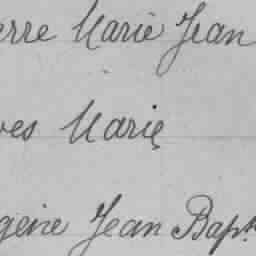 erre Marie Jean
ves Marie
gène Jean Bapt